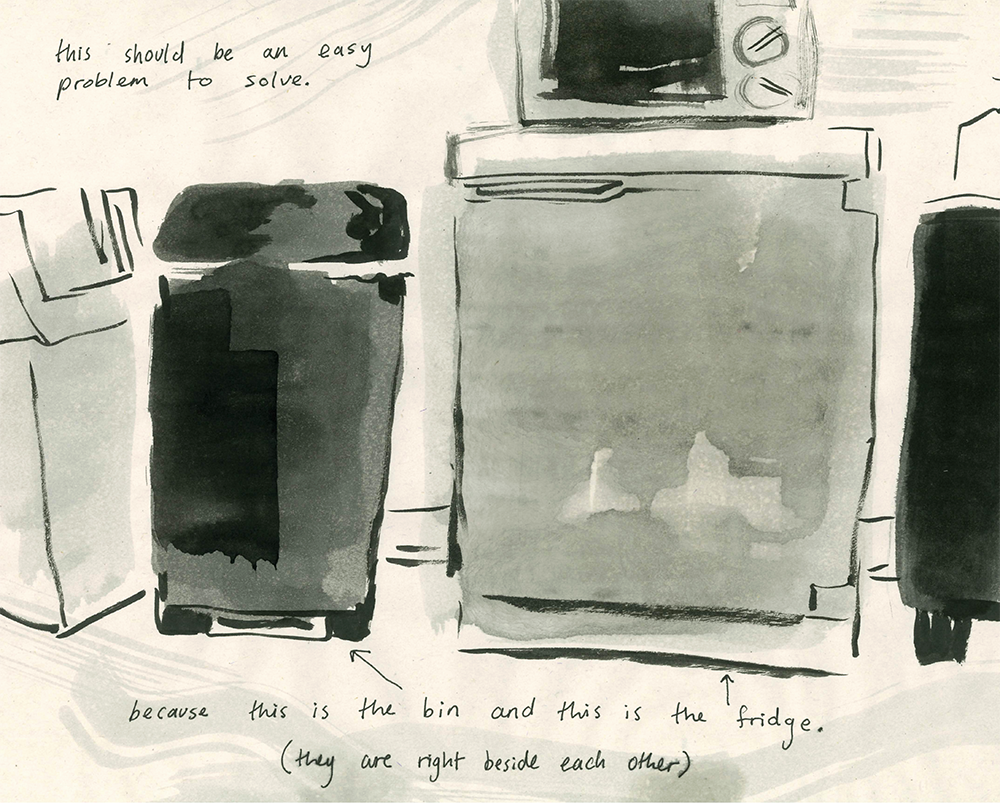 this should be an easy
problem to solve.
because this is the bin and this is the fridge.
(they are right beside each other)